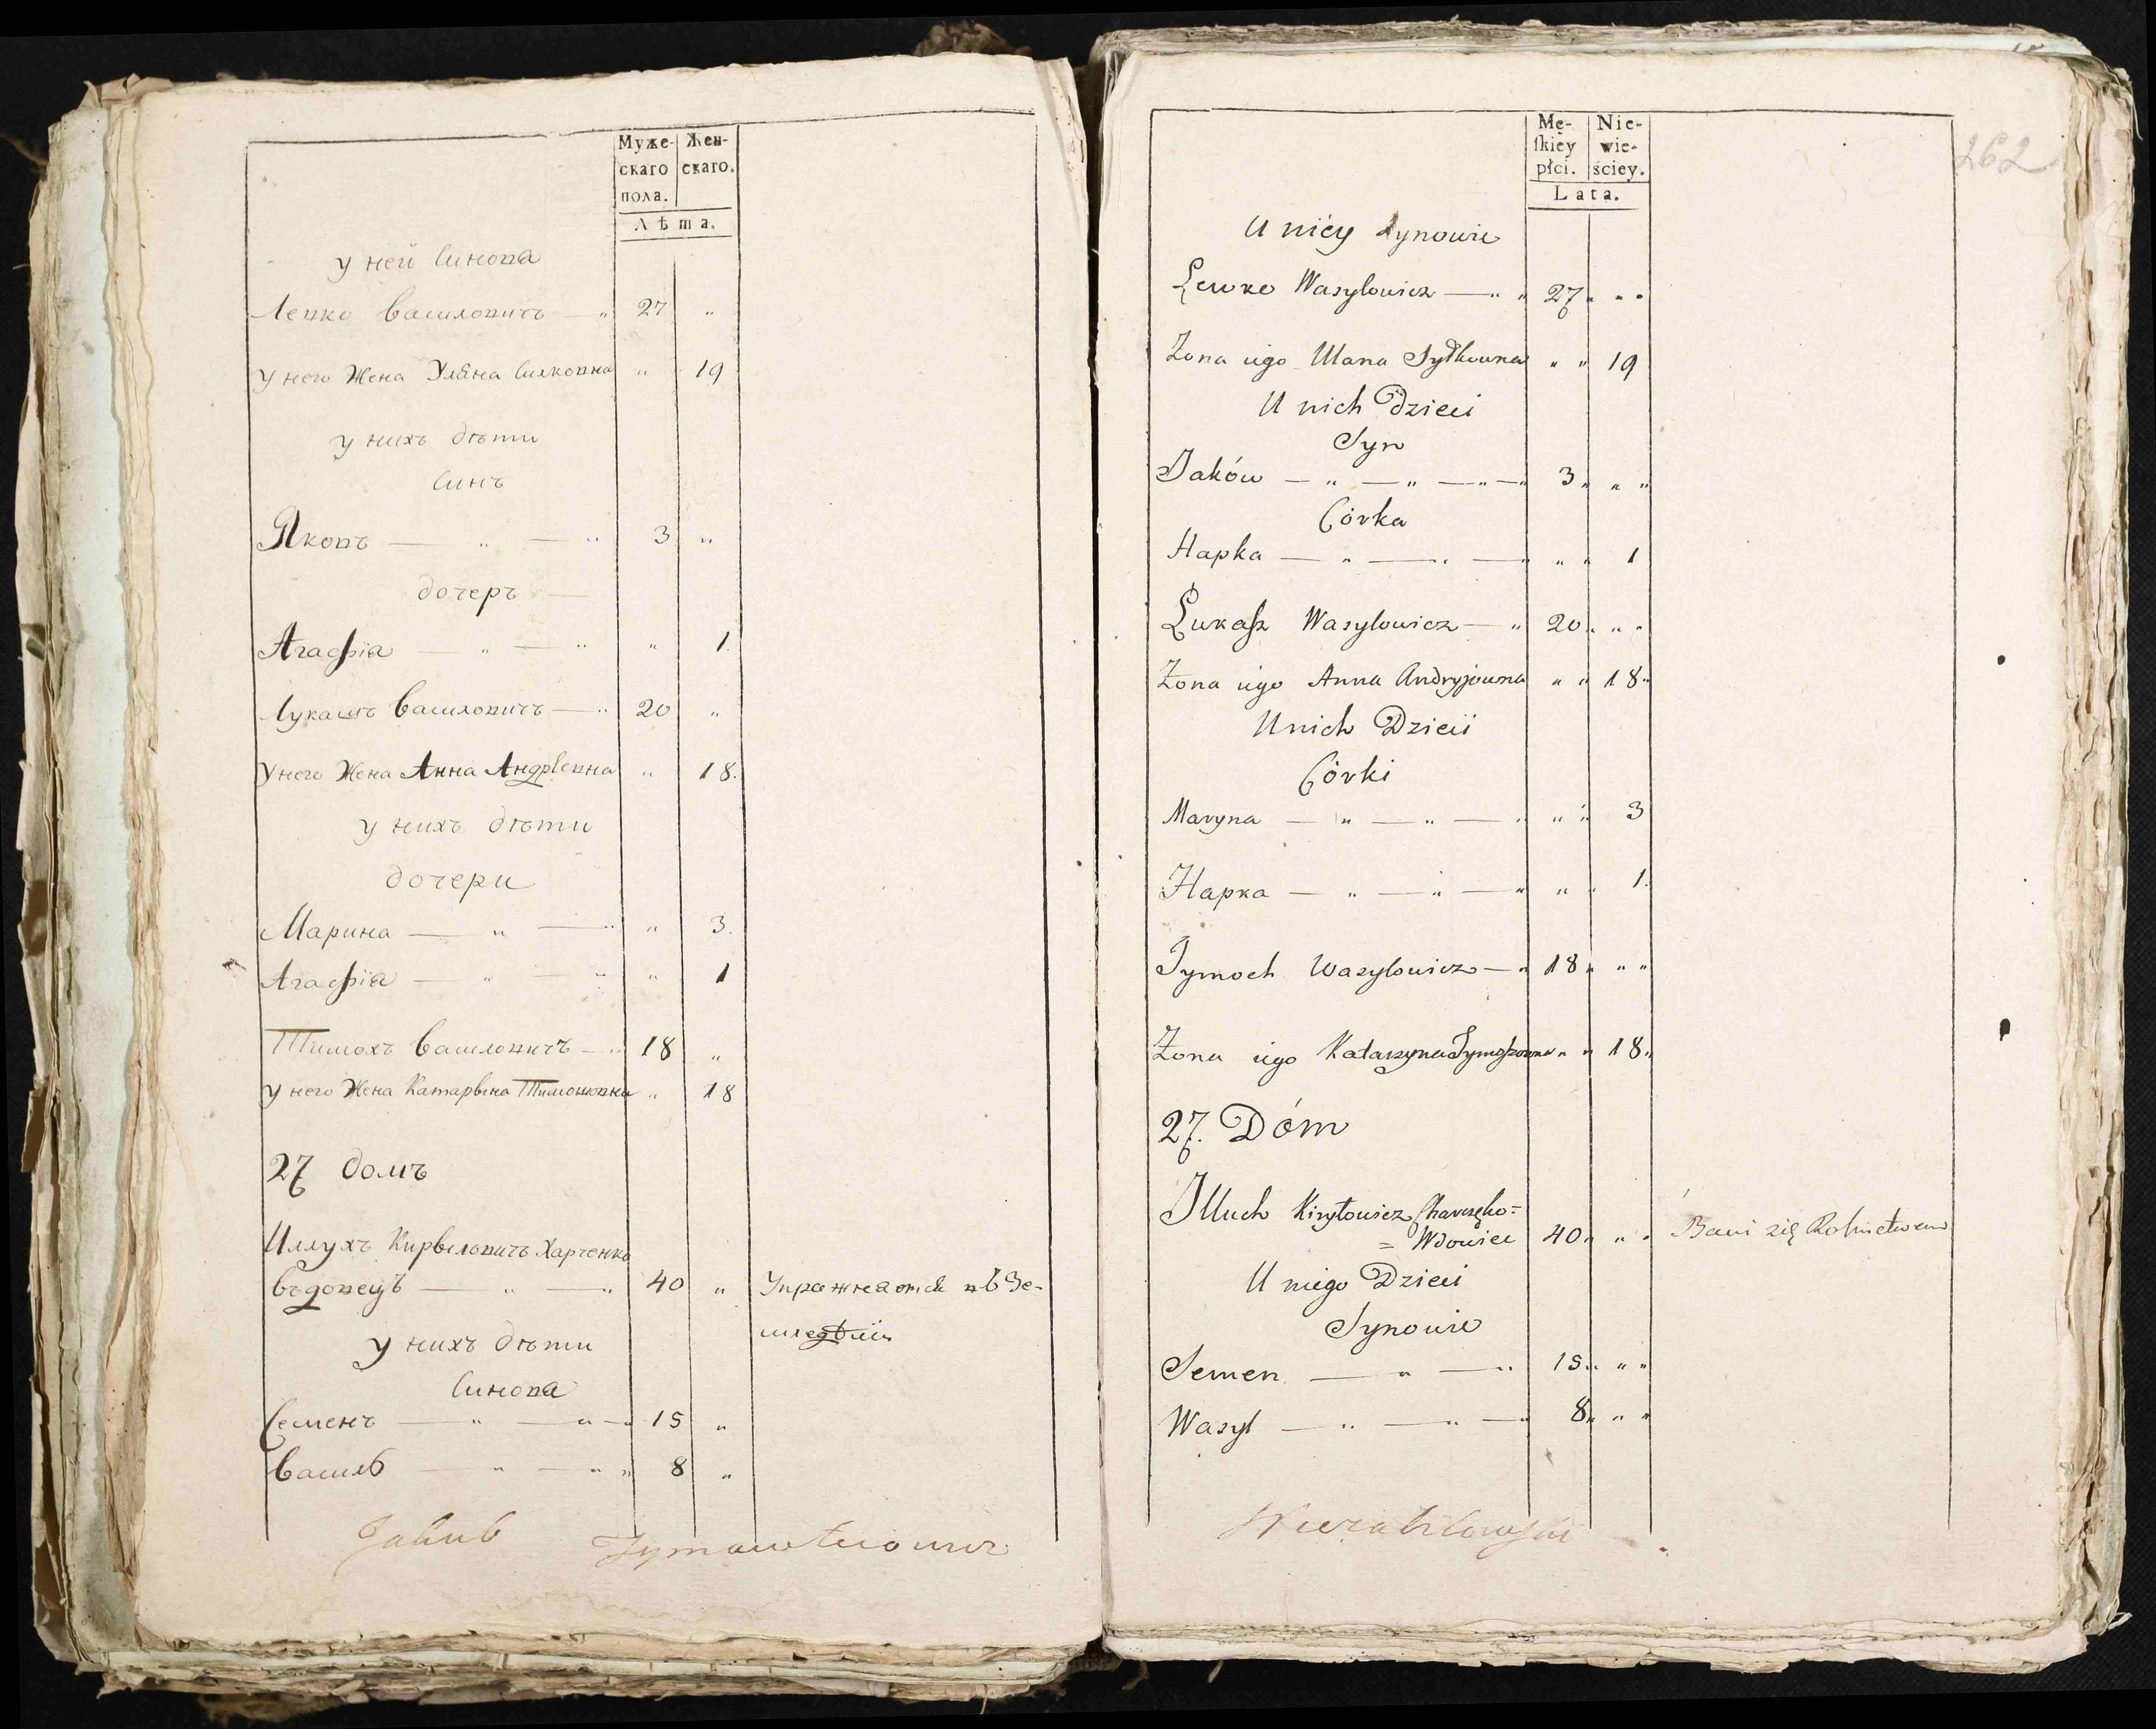 Муже- Жен-
скаго скаго.
пола.
Лѣта.
у ней Синова
Левко Василовичъ — „ 27 „
у него Жена Уляна Силковна „ 19
у нихъ дѣти
Синъ
Яковъ — „ — „ 3 „
дочеръ —
Агафія — „ — „ „ 1.
Лукашъ Василовичъ — „ 20 „
у него Жена Анна Андрѣевна „ 18.
у нихъ дѣти
дочери
Марина — „ — „ „ 3.
Агафія — „ — „ „ 1
Тимохъ Василовичъ — „ 18 „
у него Жена Катарына Тимошовна „ 18
27 домъ
Иллухъ Кирыловичъ Харченко
въдовецъ — „ — „ 40 „ Упражнается въ Зе-
мледѣлїи
у нихъ дѣти
Синова
Семенъ — „ — „ — 15 „
Василь — „ — „ „ 8 „
Jakub Szymanowicz
262
Mę- Nie-
ſkiey wie-
płci. ściey.
Lata.
U niéy Synowie
Lewko Wasylowicz — „ „ 27 „ „ „
Żona iego Ulana Sylkowna „ „ 19
U nich Dzieci
Syn
Jaków — „ — „ — „ — „ 3 „ „ „
Córka
Hapka — „ — „ — „ „ „ 1
Łukaſz Wasylowicz — „ 20 „ „ „
Żona iego Anna Andryjowna „ „ 18 „
U nich Dzieci
Córki
Maryna — „ — „ — „ „ „ 3
Hapka — „ — „ — „ „ „ 1.
Tymoch Wasylowicz — „ 18 „ „ „
Żona iego Katarzyna Tymoſzowna „ „ 18 „
27. Dóm
Illuch Kiryłowicz Charczęko =
= Wdowiec 40 „ „ „ Bawi się Rolnictwem
U niego Dzieci
Synowie
Semen — „ — „ 15 „ „ „
Wasyl — „ — „ — „ 8 „ „ „